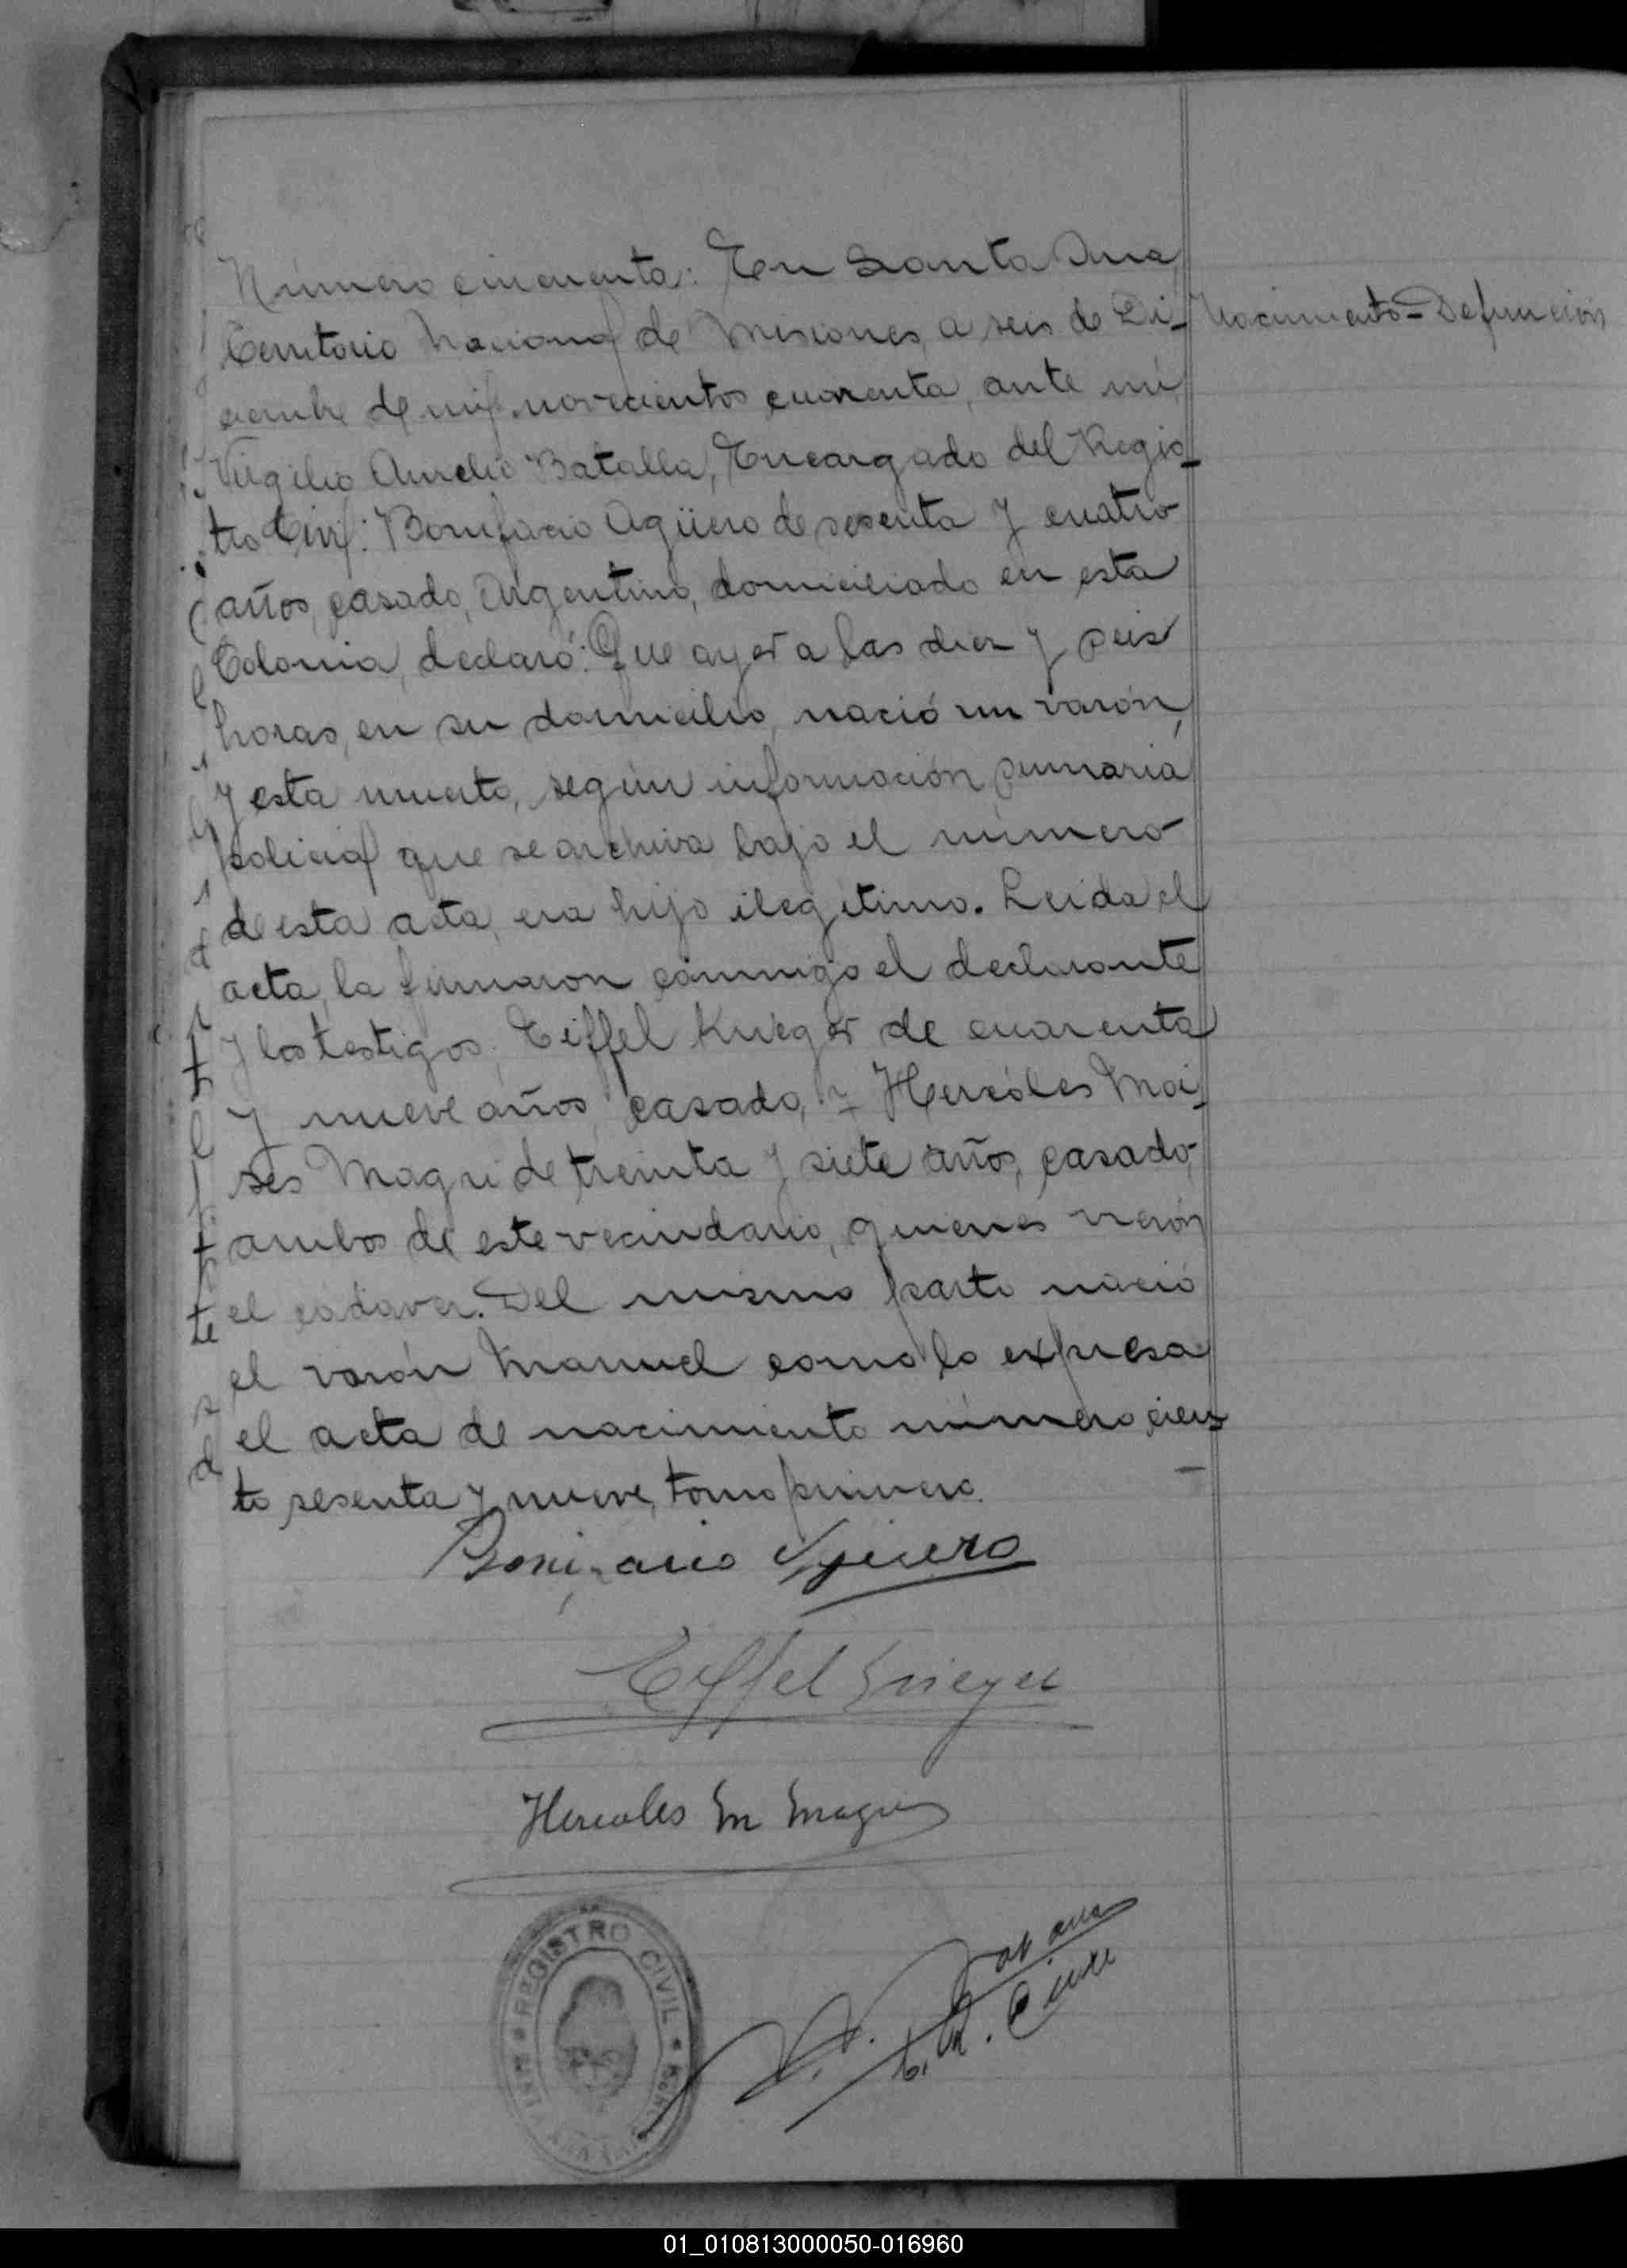 Número cincuenta: En Santa Ana,
Territorio Nacional de Misiones, a seis de Di-
Nacimiento-Defunción
ciembre de mil novecientos cuarenta, ante mí,
Virgilio Aurelio Batalla, Encargado del Regis-
tro Civil: Bonifacio Agüero de sesenta y cuatro
años, casado, Argentino, domiciliado en esta
Colonia, declaró: Que ayer a las diez y seis
horas, en su domicilio, nació un varón,
y esta muerto, según información sumaria
policial que se archiva bajo el número
de esta acta, era hijo ilegítimo. Leida el
acta, la firmaron conmigo el declarante
y los testigos, Eiffel Krieger de cuarenta
y nueve años, casado, y Hercóles Moi-
ses Magri de treinta y siete años, casado,
ambos de este vecindario, quienes vierón
el cadaver. Del mismo parto nació
el varón Manuel como lo expresa
el acta de nacimiento número cien-
to sesenta y nueve, tomo primero.
Bonifacio Agüero
Eiffel Krieger
Hercoles M Magri
REGISTRO CIVIL
01_010813000050-016960